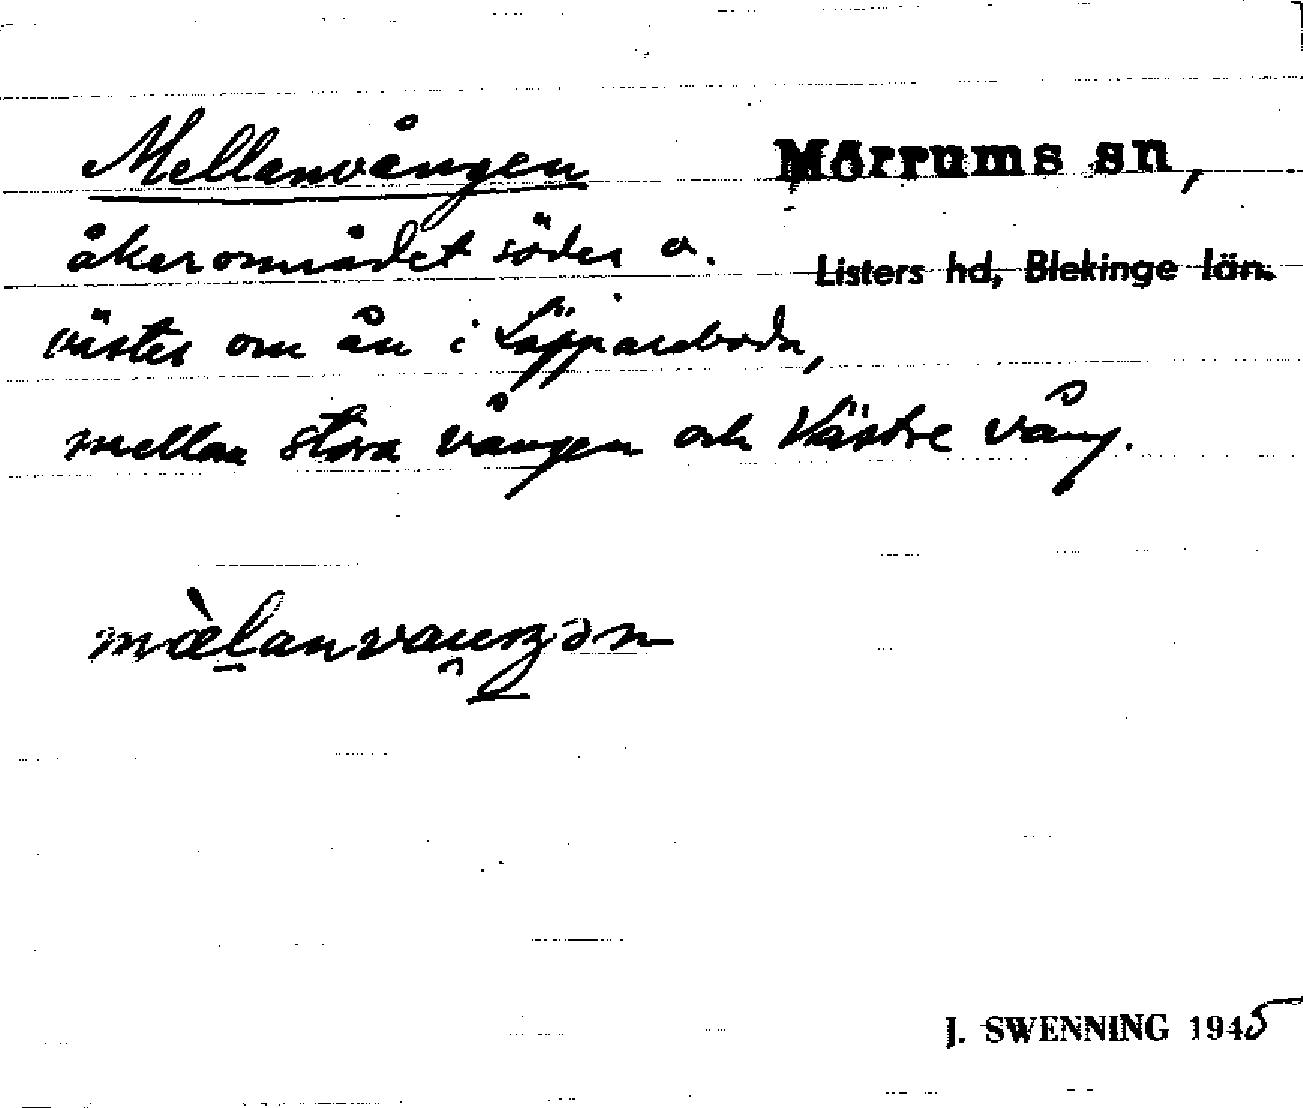 Mellanvången
Mörrums sn,
åkerområdet söder o.
Listers hd, Blekinge län.
väster om ån i Läppareboda,
mellan Stora vången och Västre vång.
mæ̀lanvauŋən
J. SWENNING 1945